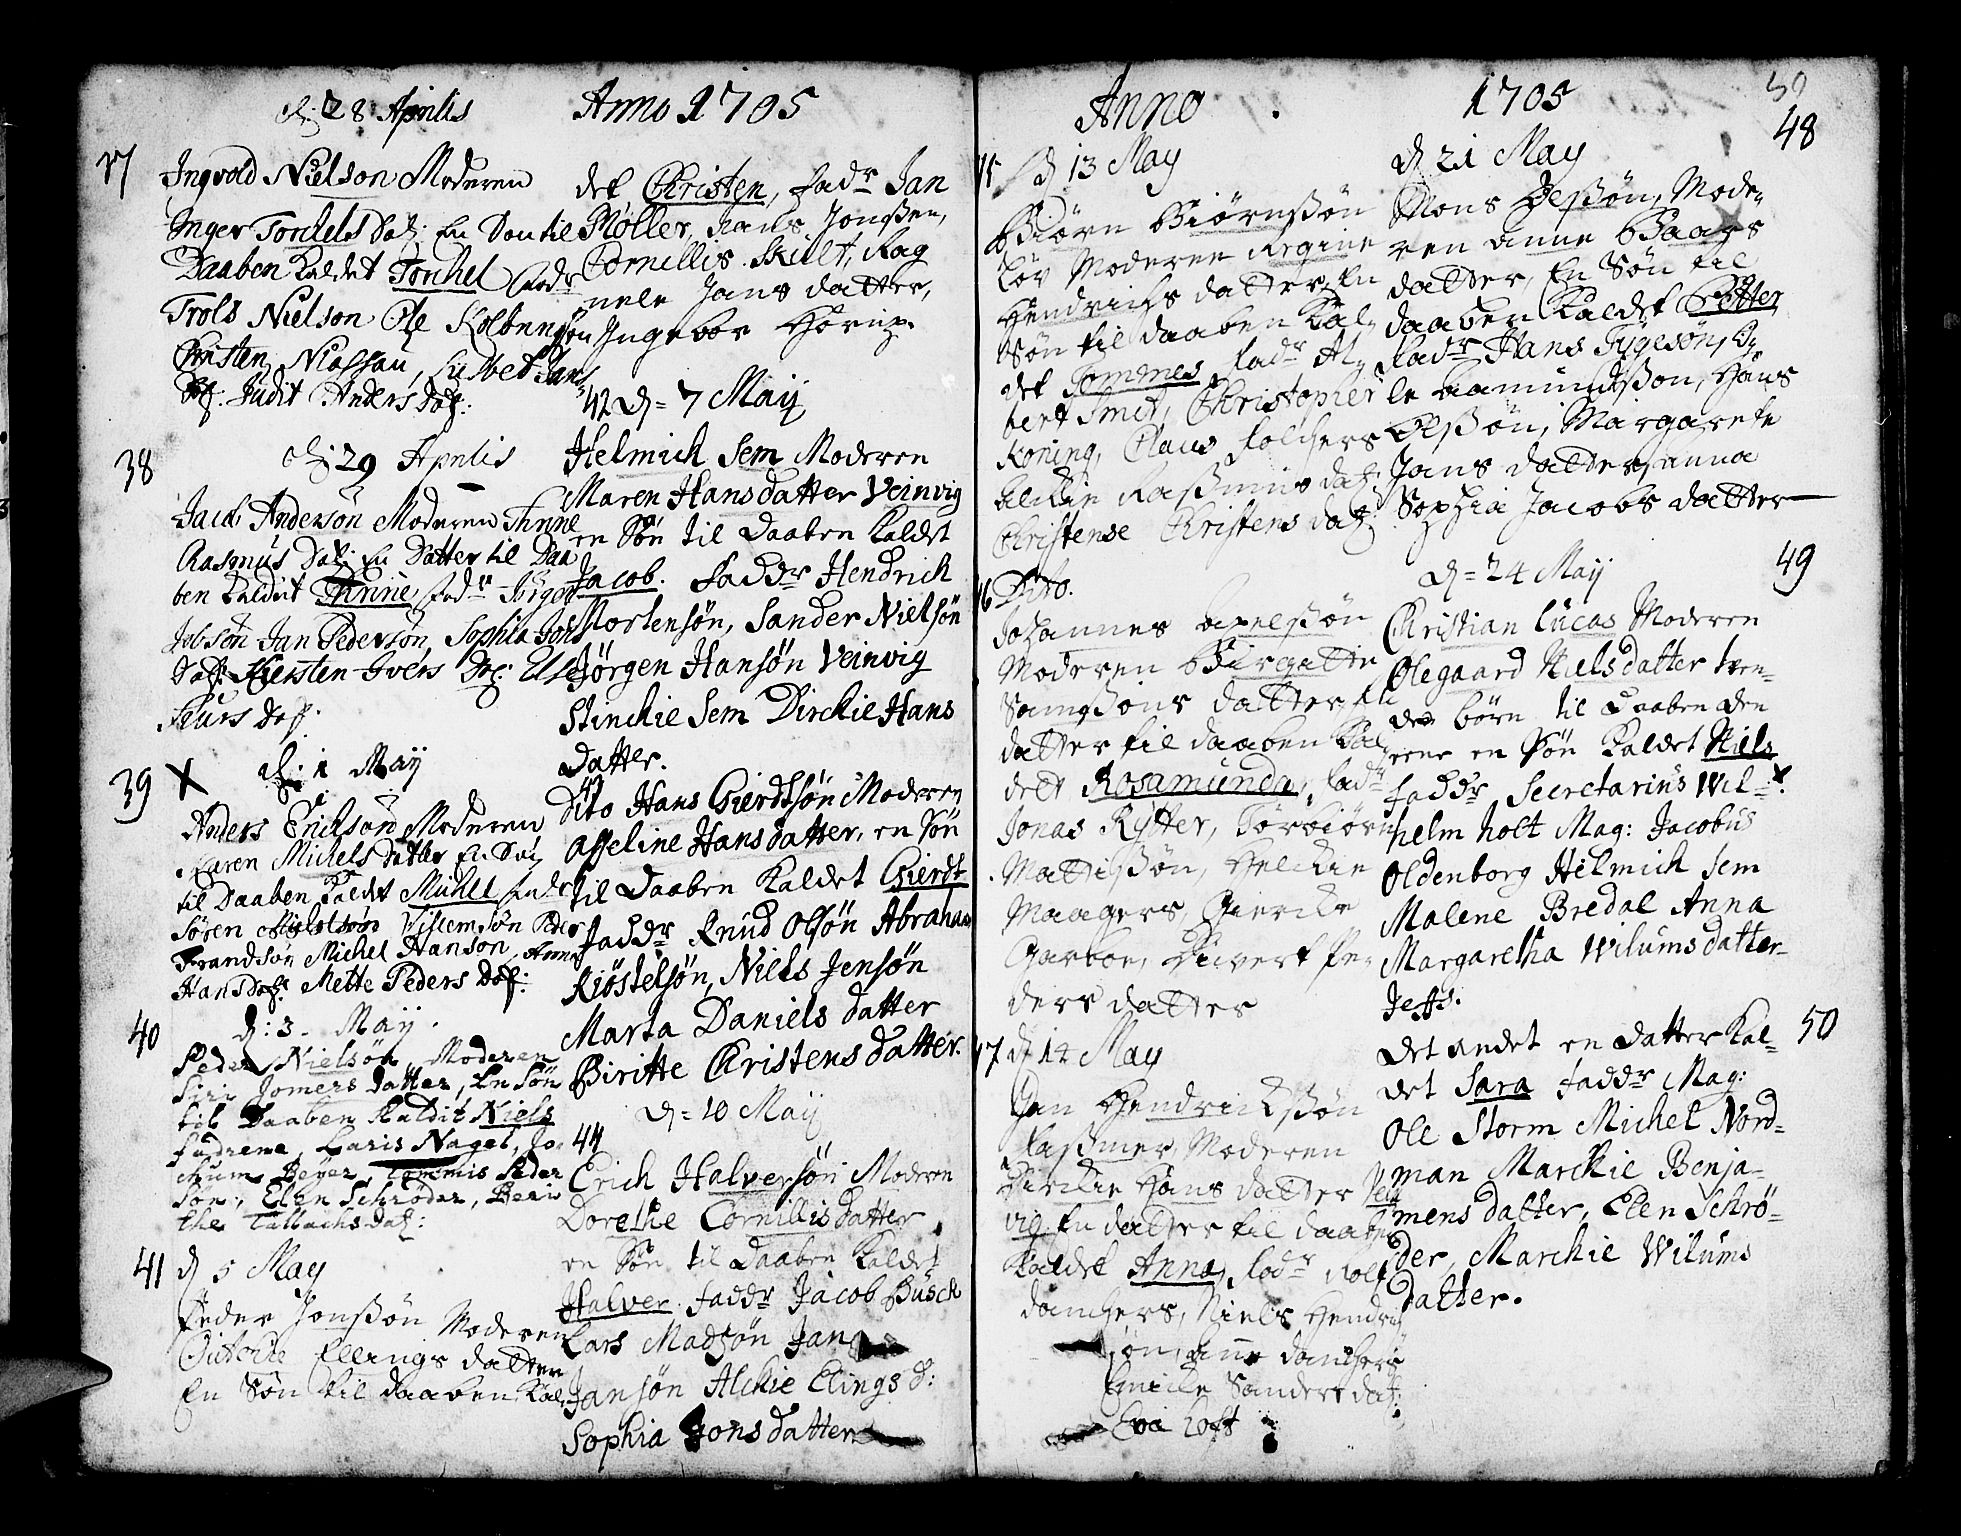 d: 28 Aprilis
Anno 1705
37
Ingvold Nielson Moderen
Inger Tonkels Dat: En Søn til
Daaben Kaldet Tonkel Fadr
Trols Nielson Ole
Christen Niels
Dat: Judit Anders Dat:
38
d: 29 Aprilis
Jacob Anderson Moderen Anne
Rasmus Dat: En Datter til Daa
ben Kaldet Anne Fadr
Jan Pederson, Sophia Jons
Dat: Kiersten Ivers Dat: Else
Dat:
39 X
d: 1 May
Anders Erichson Moderen
Karen Michels Datter En Søn
til Daaben Kaldet Michel Fadr
Søren Peder
Michel Hanson, Anne
Hans Dat: Mette Peders Dat:
40
d: 3. May.
Peder Nielsøn Moderen
Siri Jomers Datter, En Søn
til Daaben Kaldit Niels
fadrene, Laris Nagel, Jo
chum Beyer, Tommis Peder
søn, Elen Schrøder, Beri
the Dat:
41
d 5 May
Peder Jonssøn Moderen
Ellings datter
En Søn til daaben Kal-
det Christen, Fadr Jan
Møller, Hans Jonssen,
Cornellis Skilt, Rag
nele Jans datter,
Ingebor
42 d = 7 Maij
Helmich Sem Moderen
Maren Hansdatter Veinvig
en Søn til Daaben Kaldet
Jacob. Faddr Hendrich
Mortensøn, Sander Nielsøn
Jørgen Hansøn Veinvig
Stinckie Sem Dirckie Hans
Datter.
43
Dito Hans Gierdtsøn Moderen
Asseline Hansdatter, en Søn
til Daaben Kaldet Gierdt
Faddr Knud Olsøn Abraham
Kiøstelsøn, Niels Jensøn
Marta Daniels datter
Biritte Christens datter.
d = 10 Maij
44
Erich Halversøn Moderen
Dorethe Cornillisdatter
en Søn til Daaben Kaldet
Halver Faddr Jacob Busch
Lars Madsøn Jan
Jansøn Alckie Elings d:
Sophia Jonsdatter
Anno
1705
50
d 13 May
Biørn Biørnssøn
Moderen Regine
Hendrichs datter, En
Søn til daaben Kal-
det Tommes Fadr Al-
bert Smit, Christopher
Koning, Claus Folchers
Rassmus dat:
Christense Christens dat:
46 Dito.
Johannes Axelssøn
Moderen Birgitte
Samssøns datter, En
datter til daaben Kal-
det Rosamunda, Fadr
Jonas Rytter, Torbiørn
Mattissøn, Helckie
Maagers, Giercke
Garboe, Sivert Pe-
ders datter
47 d 14 May
Jan Hendrickssøn
Rassmer, Moderen
Dirckie Hans datter Vein
vig En datter til daaben
Kaldet Anna, Fadr Rolf
danchers, Niels Hendrich
søn, Anne danchers
Sanders dat:
Eva Loft
48
d 21 May
Mons Olssøn, Mode-
ren Anne Baars
datter, En Søn til
daaben Kaldet Petter
Fadr Hans Tygesøn, O
le Aamundssøn, Hans
Olssøn, Margarete
Jans datter, Anna
Sophia Jacobs datter
49
d = 24 May
Christian Lucas Moderen
Olegaard Nielsdatter tven-
de børn til Daaben den
eene en Søn Kaldet Niels
Faddr Secretarius Wil-
helm Holt Mag: Jacobus
Oldenborg Helmich Sem
Malene Bredal Anna
Margaretha Wilumsdatter-
Jess.
50
Det andet en Datter Kal-
det Sara Faddr Mag:
Ole Storm Michel Nord-
man Marckie Benja-
mens datter, Elen Schrø-
der, Marckie Wilums
datter.